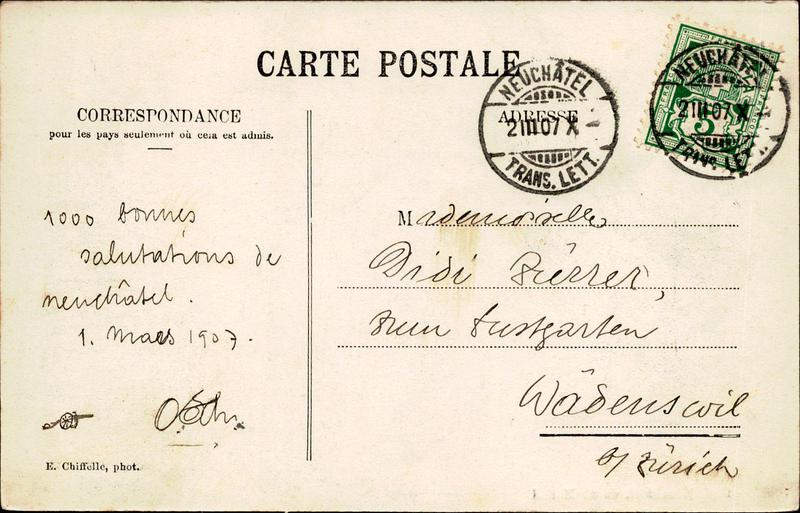 CARTE POSTALE
CORRESPONDANCE
pour les pays seulement où cela est admis.
ADRESSE
NEUCHÂTEL
2 III 07 X
TRANS. LETT.
NEUCHÂTEL
2 III 07 X
TRANS. LETT.
5
1000 bonnes
salutations de
neuchâtel.
1. Mars 1907.
E. Chiffelle, phot.
Mademoiselle
Didi Zürrer,
zum Lustgarten
Wädenswil
b/ Zürich